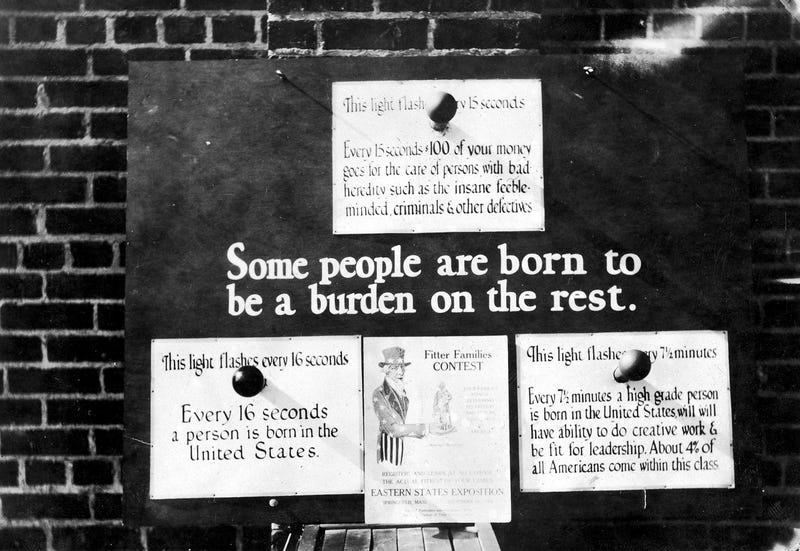 This light flash ry 15 seconds
Every 15 seconds $100 of your money
goes for the care of persons with bad
heredity such as the insane feeble-
minded, criminals & other defectives
Some people are born to
be a burden on the rest.
This light flashes every 16 seconds
Every 16 seconds
a person is born in the
United States.
Fitter Families
CONTEST
THE ACTUAL FITNESS OF YOUR FAMILY
EASTERN STATES EXPOSITION
SPRINGFIELD, MASS.
This light flashes ry 7½ minutes
Every 7½ minutes a high grade person
is born in the United States, will will
have ability to do creative work &
be fit for leadership. About 4% of
all Americans come within this class